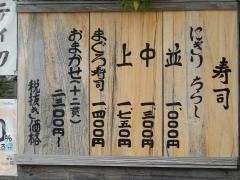 寿司
にぎり ちらし
並 一〇〇〇円
中 一三〇〇円
上 一七五〇円
まぐろ寿司 一四〇〇円
おまかせ(十二貫) 二三〇〇円〜
税抜き価格
ティク